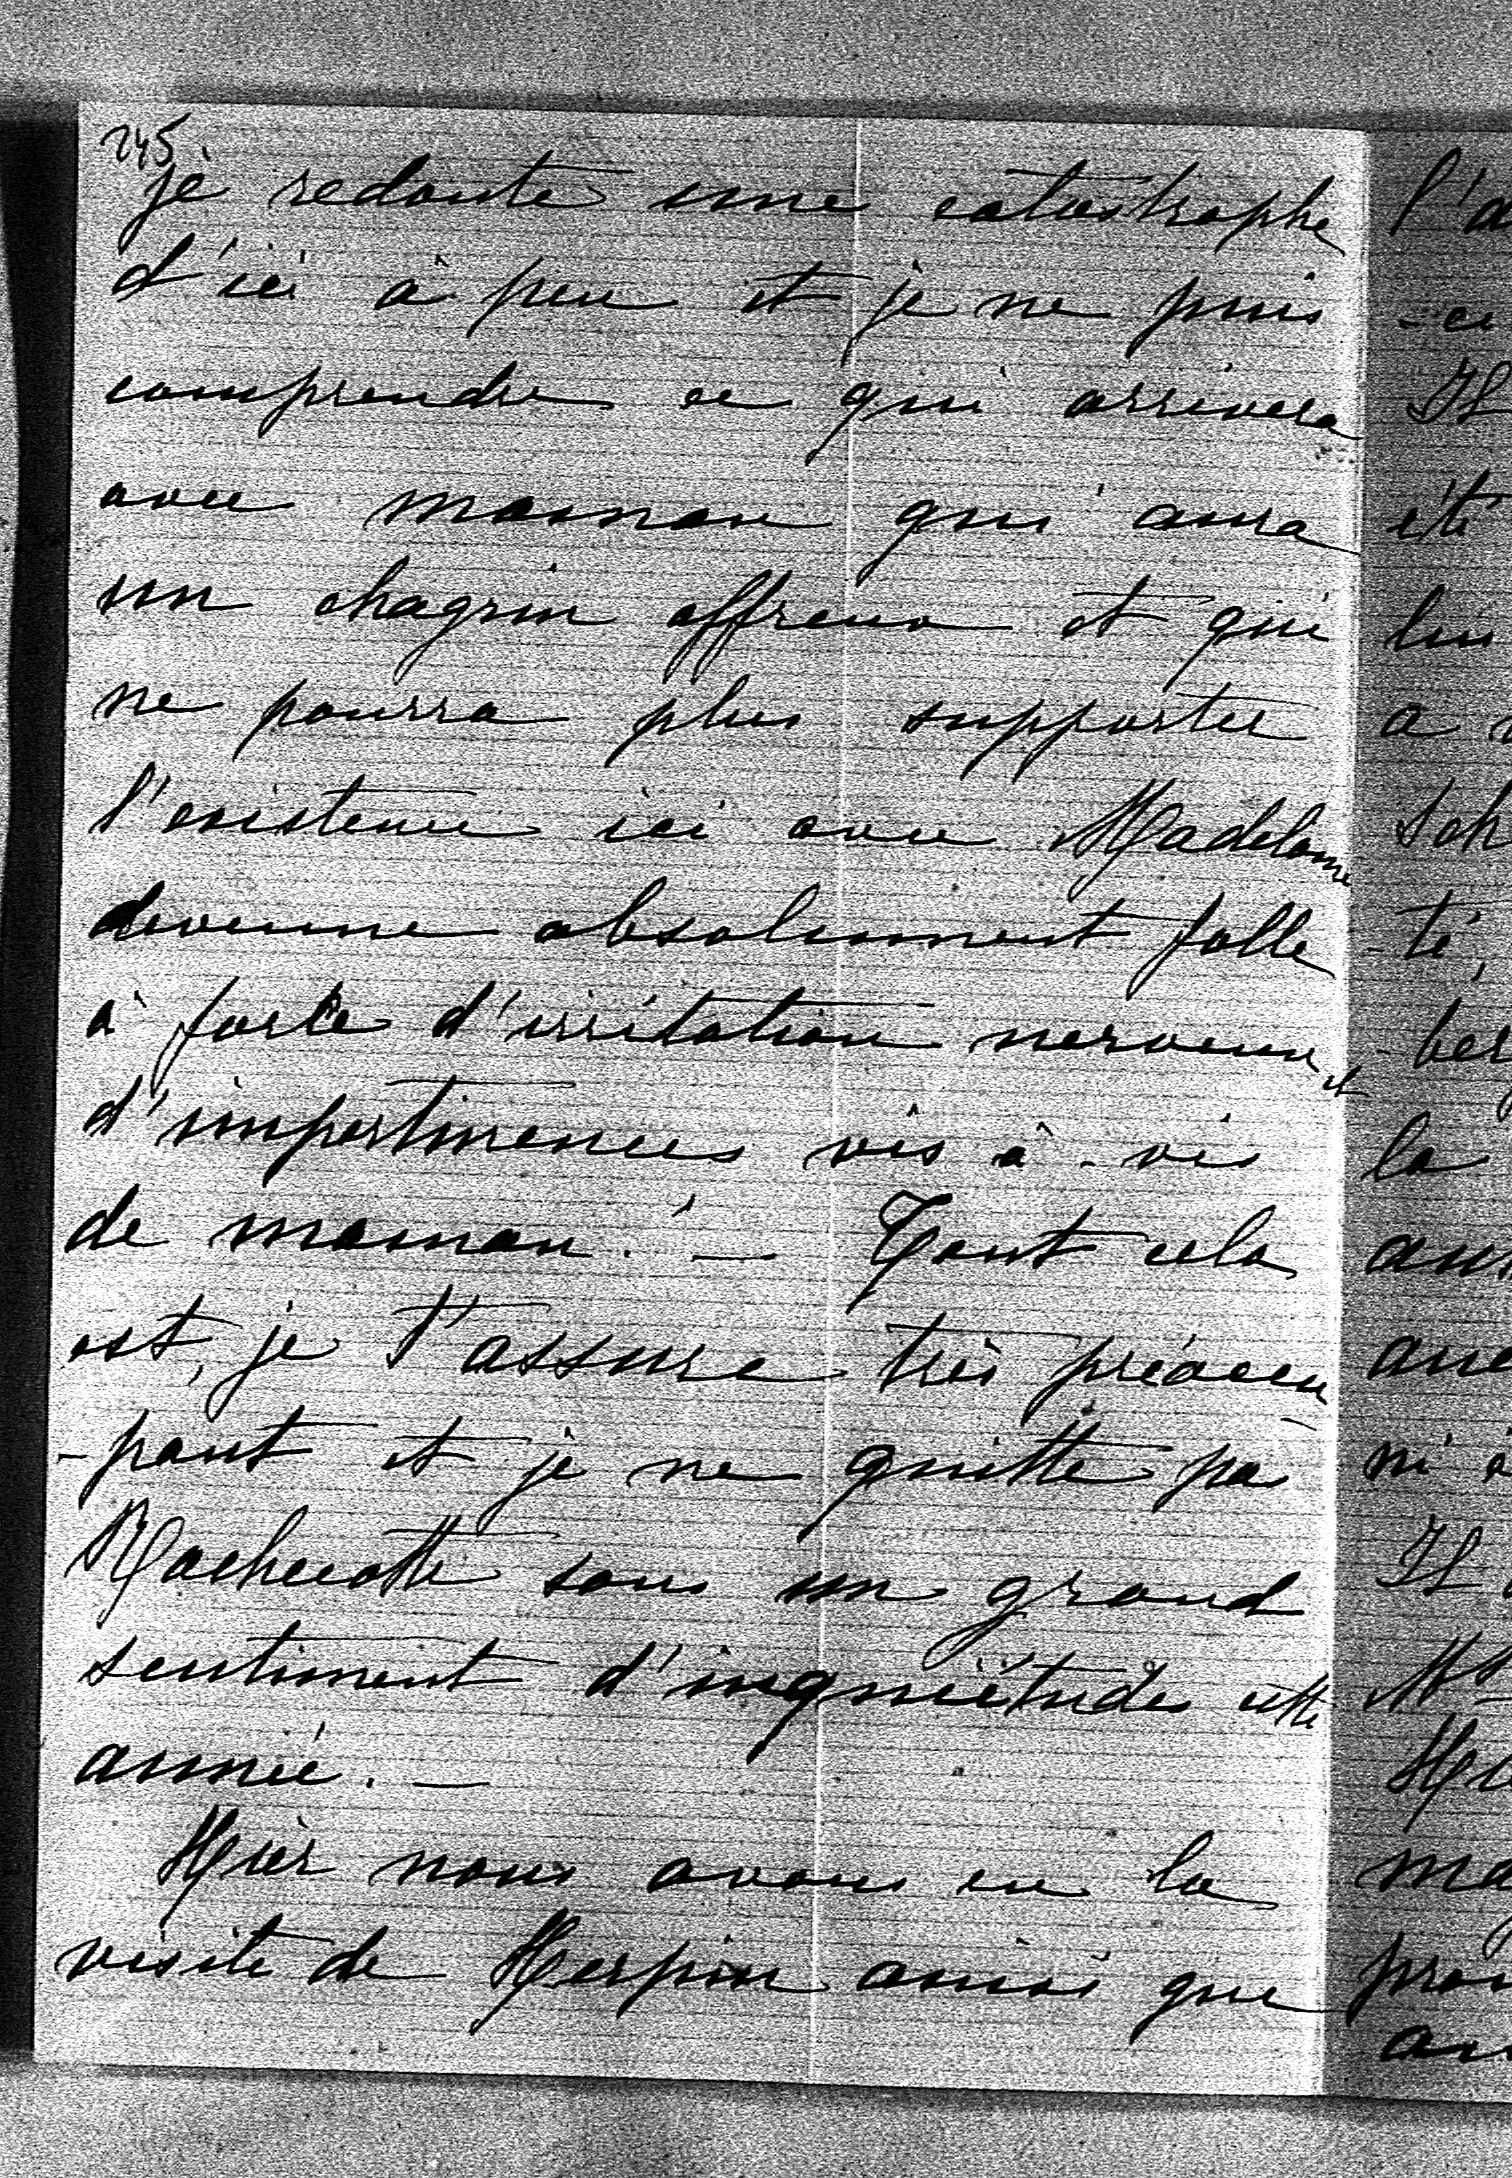 245
je redoute une catastrophe
d'ici à peu et je ne puis
comprendre ce qui arrivera
avec maman qui aura
un chagrin affreux et qui
ne pourra plus supporter
l'existence ici avec Madelaine
devenue absolument folle
à force d'irritation nerveuse et
d'impertinences vis à-vis
de maman ! — Tout cela
est, je t'assure très préoccu
-pant et je ne quitte pas
Rochecotte sans un grand
sentiment d'inquiétude cette
année. —
Hier nous avons eu la
visite de Herpin ainsi que